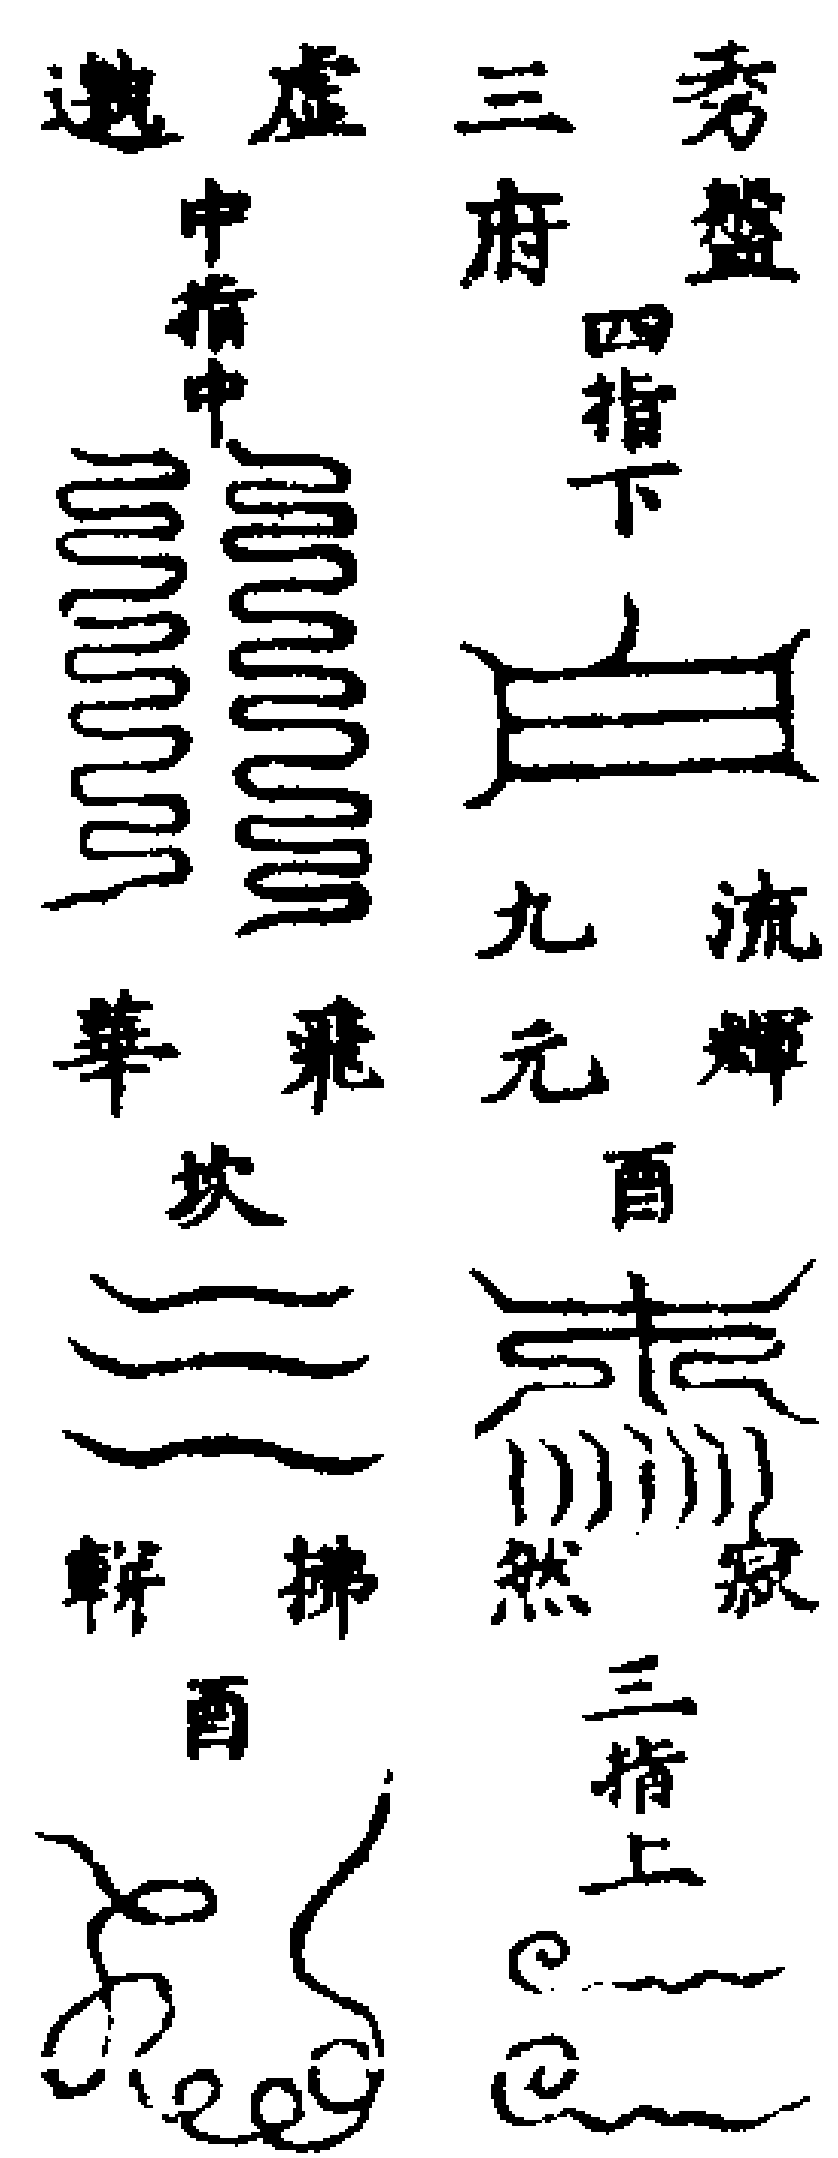 盤
三府
四指下
流輝
九元
酉
寂然
三指上
虛
中指中
飛華
坎
拂軿
酉